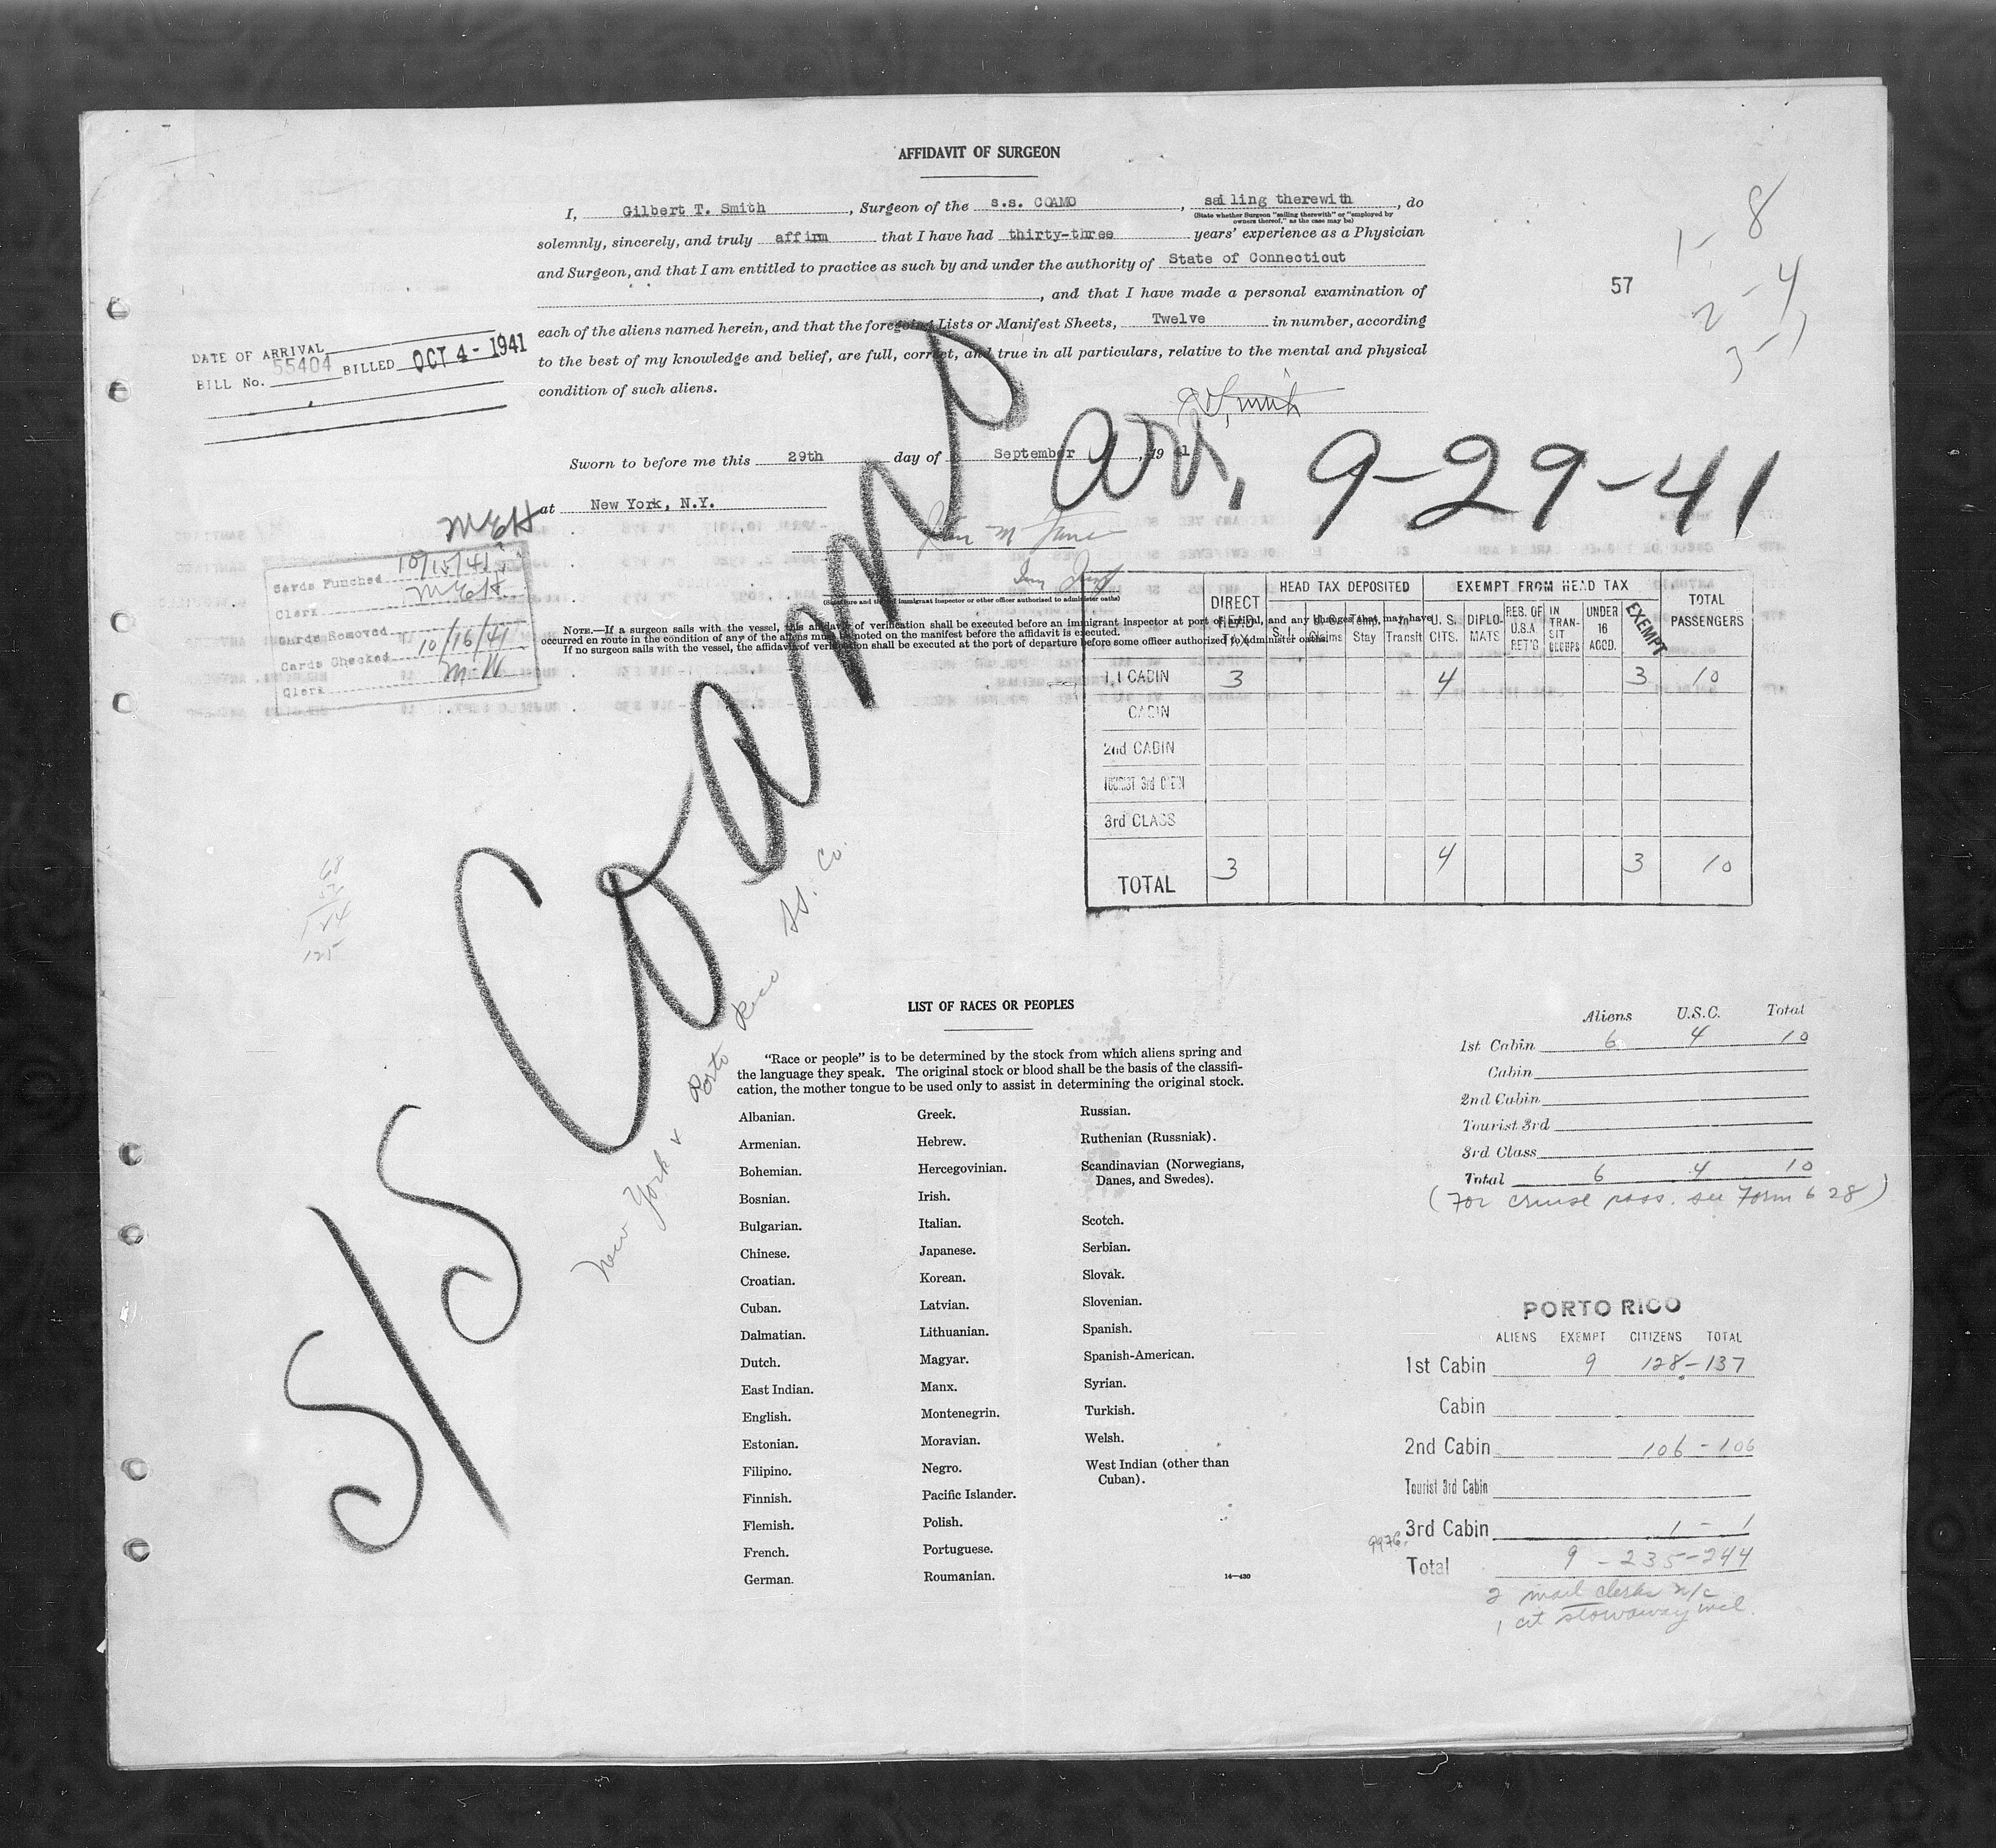 AFFIDAVIT OF SURGEON
I, Gilbert T. Smith, Surgeon of the s.s. COAMO, sailing therewith, do
(State whether Surgeon "sailing therewith" or "employed by
owners thereof," as the case may be)
solemnly, sincerely, and truly affirm that I have had thirty-three years' experience as a Physician
and Surgeon, and that I am entitled to practice as such by and under the authority of State of Connecticut
, and that I have made a personal examination of
each of the aliens named herein, and that the foregoing Lists or Manifest Sheets, Twelve in number, according
to the best of my knowledge and belief, are full, correct, and true in all particulars, relative to the mental and physical
condition of such aliens.
Smith
1 - 8
2 - 4
3 - 1
57
DATE OF ARRIVAL
BILL No. 55404 BILLED OCT 4 - 1941
Sworn to before me this 29th day of September, 19 41
at New York, N.Y.
S/S Coamo arr. 9-29-41
New York & Porto Rico SS. Co.
MEH
Cards Punched 10/15/41
Clerk MEH
Cards Removed
Cards Checked 10/16/41
Clerk M.W
(Signature and title of immigrant inspector or other officer authorized to administer oaths)
NOTE.—If a surgeon sails with the vessel, this affidavit of verification shall be executed before an immigrant inspector at port of arrival, and any changes that may have
occurred en route in the condition of any of the aliens must be noted on the manifest before the affidavit is executed.
If no surgeon sails with the vessel, the affidavit of verification shall be executed at the port of departure before some officer authorized to administer oaths.
DIRECT HEAD TAX HEAD TAX DEPOSITED EXEMPT FROM HEAD TAX TOTAL PASSENGERS
S. I. U.S. Claims Temp. Stay In Transit U. S. CITS. DIPLO- MATS RES. OF U.S.A. RET'D IN TRAN- SIT GROUPS UNDER 16 ACCD. EXEMPT
1st CABIN 3 4 3 10
CABIN
2nd CABIN
TOURIST 3rd CABIN
3rd CLASS
TOTAL 3 4 3 10
68
57
125
LIST OF RACES OR PEOPLES
"Race or people" is to be determined by the stock from which aliens spring and
the language they speak. The original stock or blood shall be the basis of the classifi-
cation, the mother tongue to be used only to assist in determining the original stock.
Albanian.
Armenian.
Bohemian.
Bosnian.
Bulgarian.
Chinese.
Croatian.
Cuban.
Dalmatian.
Dutch.
East Indian.
English.
Estonian.
Filipino.
Finnish.
Flemish.
French.
German.
Greek.
Hebrew.
Hercegovinian.
Irish.
Italian.
Japanese.
Korean.
Latvian.
Lithuanian.
Magyar.
Manx.
Montenegrin.
Moravian.
Negro.
Pacific Islander.
Polish.
Portuguese.
Roumanian.
Russian.
Ruthenian (Russniak).
Scandinavian (Norwegians,
Danes, and Swedes).
Scotch.
Serbian.
Slovak.
Slovenian.
Spanish.
Spanish-American.
Syrian.
Turkish.
Welsh.
West Indian (other than
Cuban).
14—430
Aliens U.S.C. Total
1st Cabin 6 4 10
Cabin
2nd Cabin
Tourist 3rd
3rd Class
Total 6 4 10
(For cruise pass. see Form 628)
PORTO RICO
ALIENS EXEMPT CITIZENS TOTAL
1st Cabin 9 128-137
Cabin
2nd Cabin 106-106
Tourist 3rd Cabin
9976
3rd Cabin 1 - 1
Total 9 - 235-244
2 mail clerks n/c
1 cit stowaway incl.